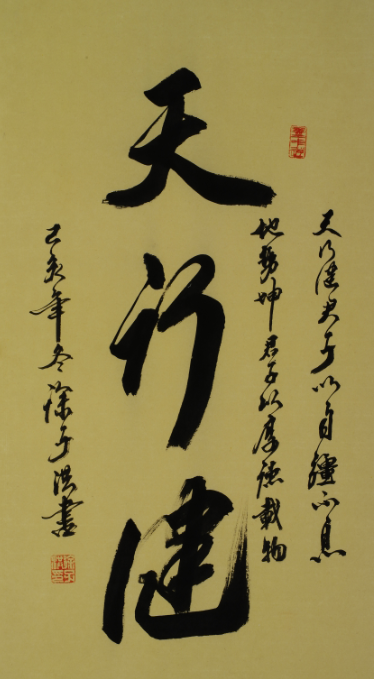 天行健
天行健君子以自强不息
地势坤君子以厚德载物
己亥年冬徐子洪书